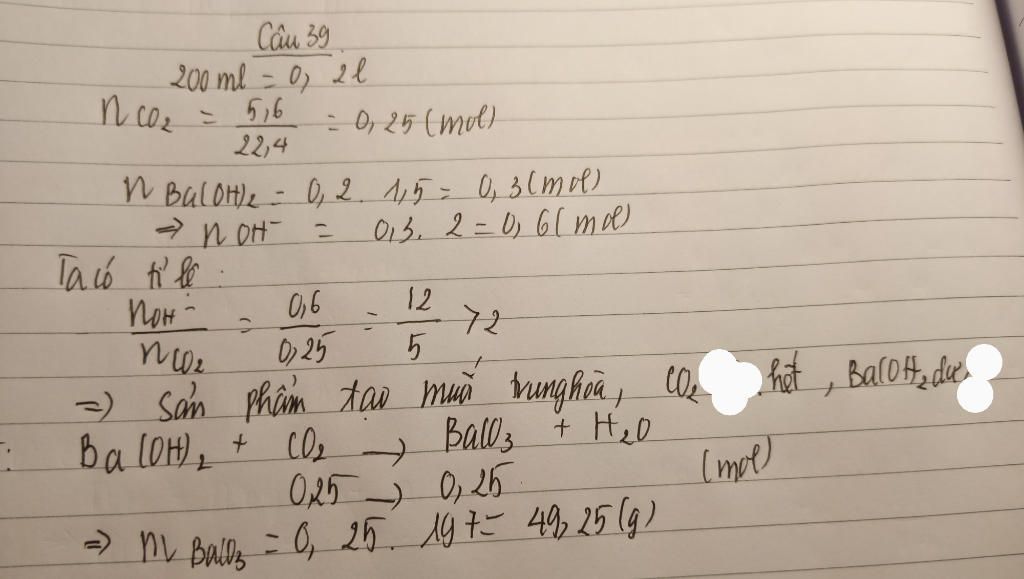 Câu 39
200 ml = 0, 2 l
n CO2 = 5,6 / 22,4 = 0,25 (mol)
n Ba(OH)2 = 0,2 . 1,5 = 0,3 (mol)
=> n OH⁻ = 0,3 . 2 = 0,6 (mol)
Ta có tỉ lệ :
nOH⁻ / nCO2 = 0,6 / 0,25 = 12 / 5 > 2
=> Sản phẩm tạo muối trung hoà, CO2 hết , Ba(OH)2
Ba(OH)2 + CO2 → BaCO3 + H2O
0,25 → 0,25 (mol)
=> m BaCO3 = 0, 25 . 197 = 49,25 (g)